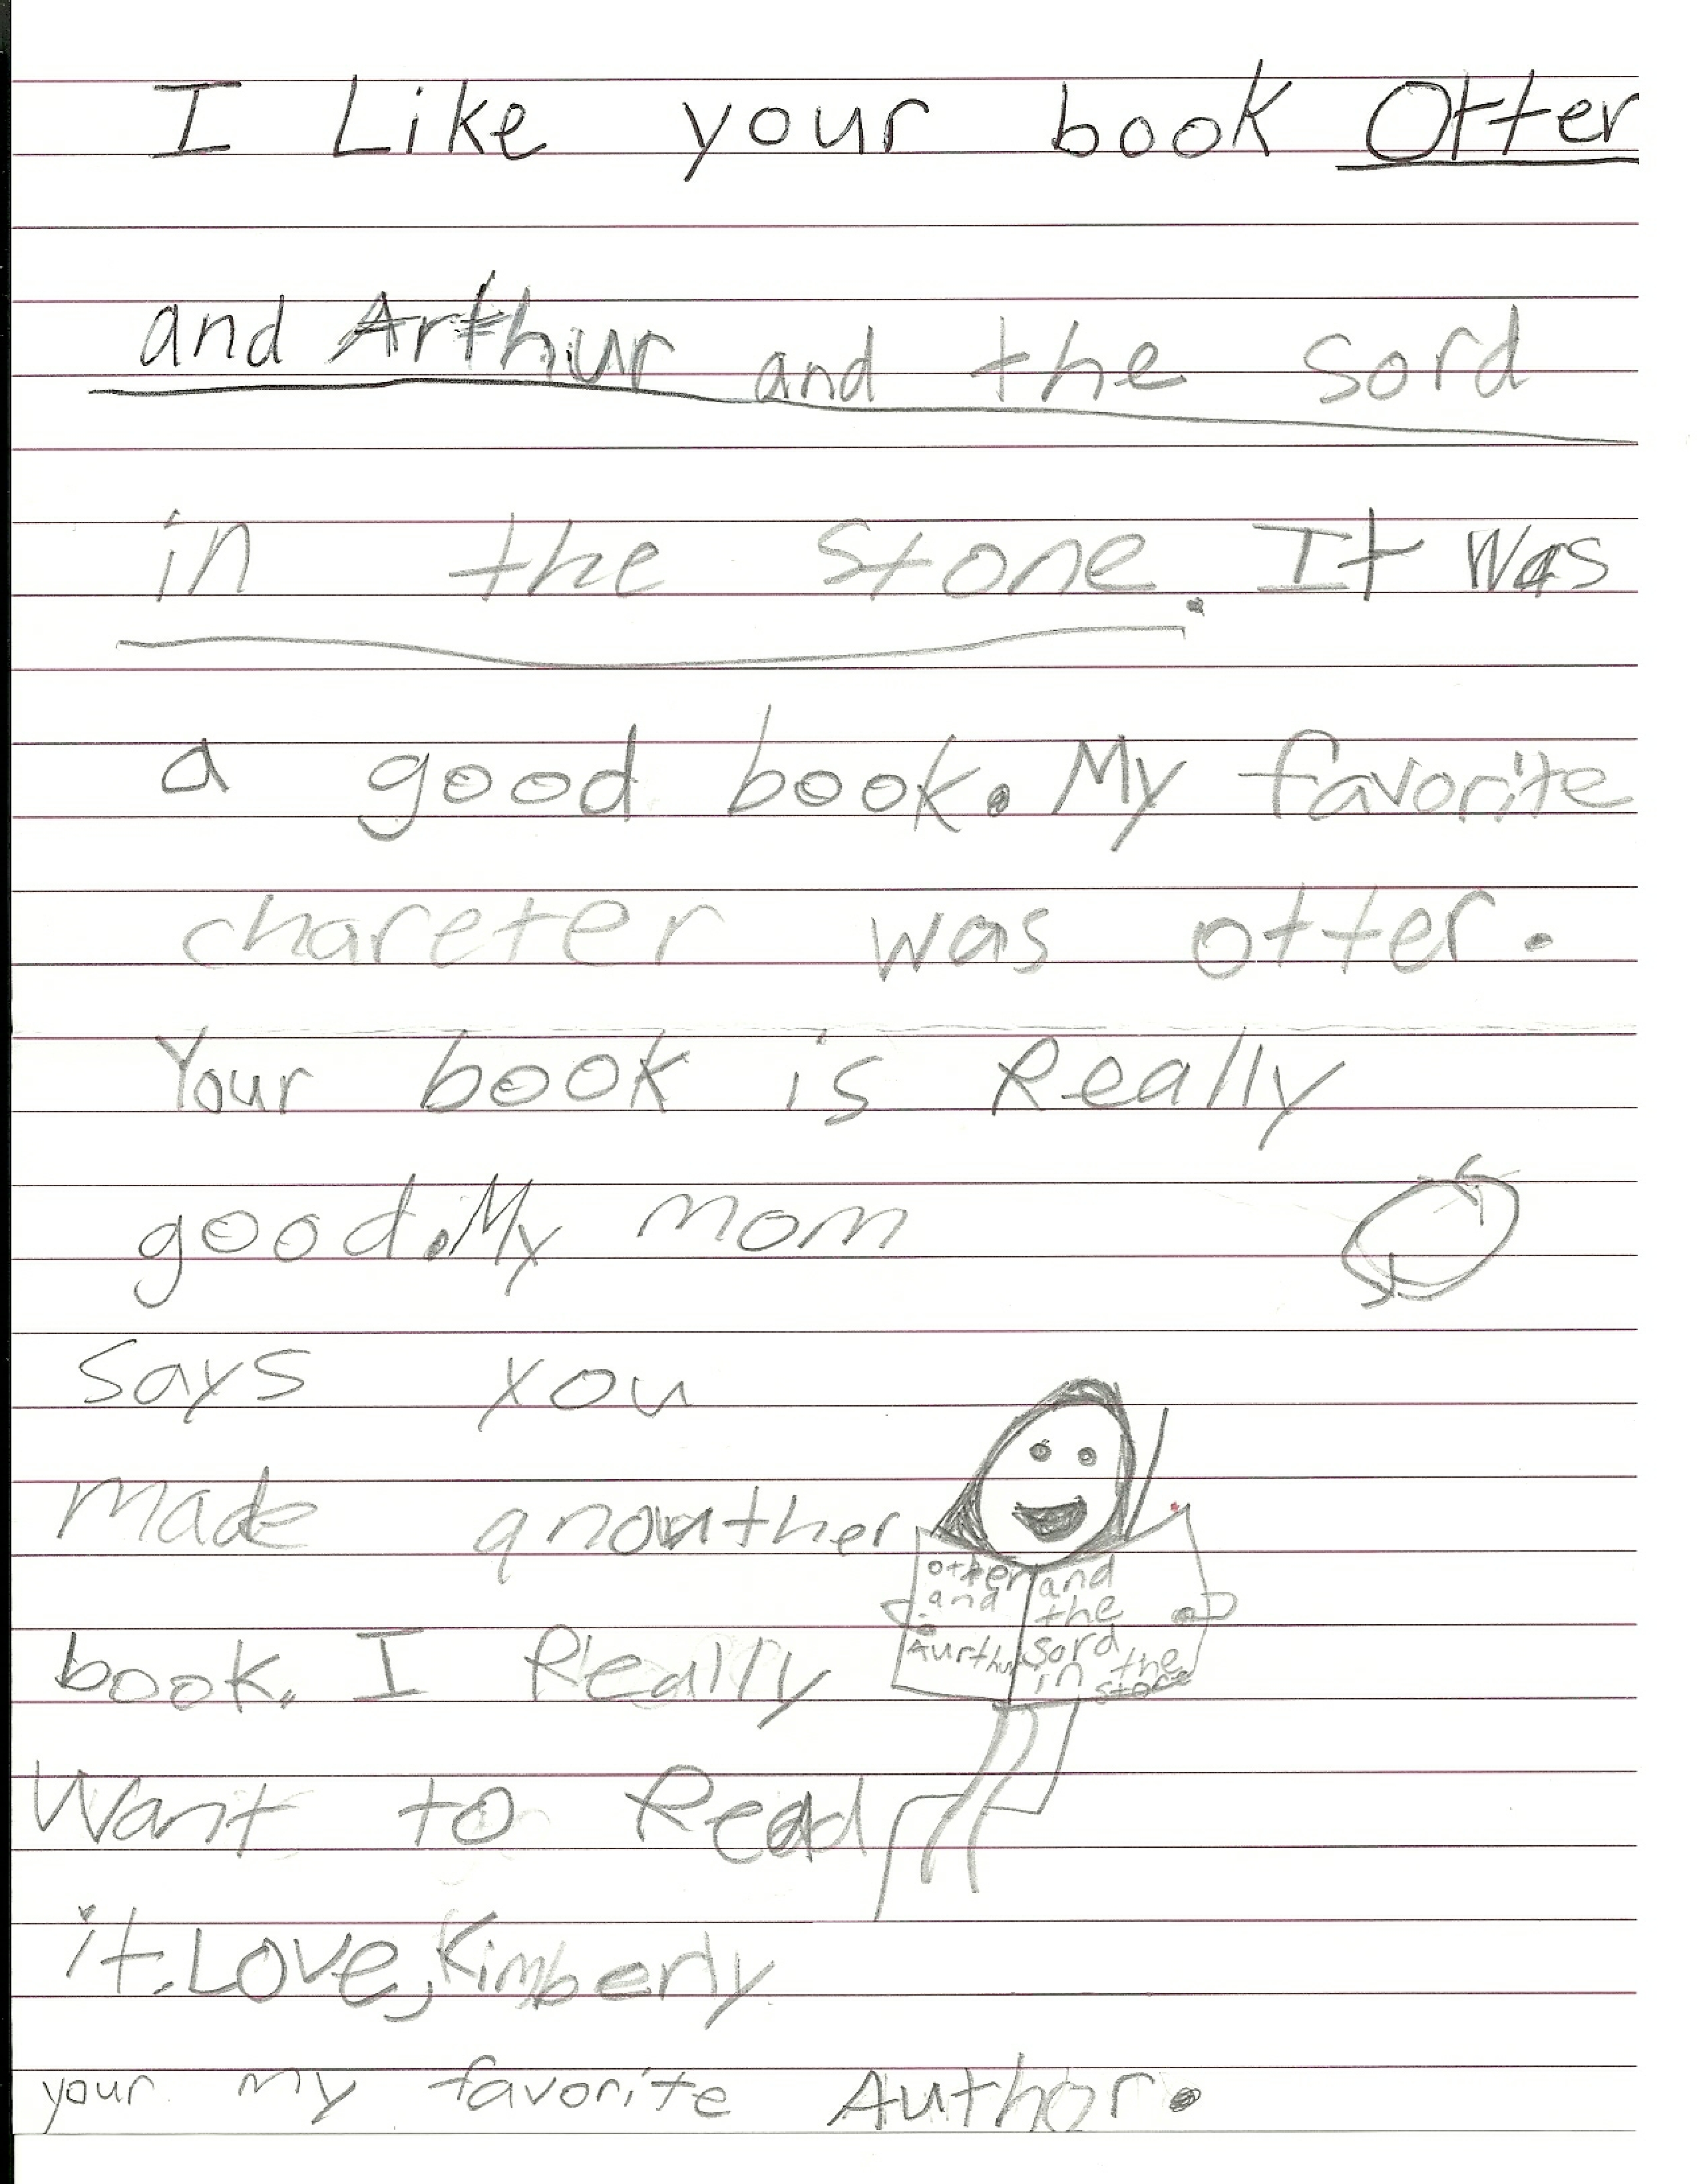 I Like your book Otter
and Arthur and the sord
in the stone. It was
a good book. My favorite
chareter was otter.
Your book is Really
good. My mom
says you
made anouther
book. I Really
Want to Read
it. Love, Kimberly
your my favorite Author.
otter and
and the
Aurthur sord
in the
stone